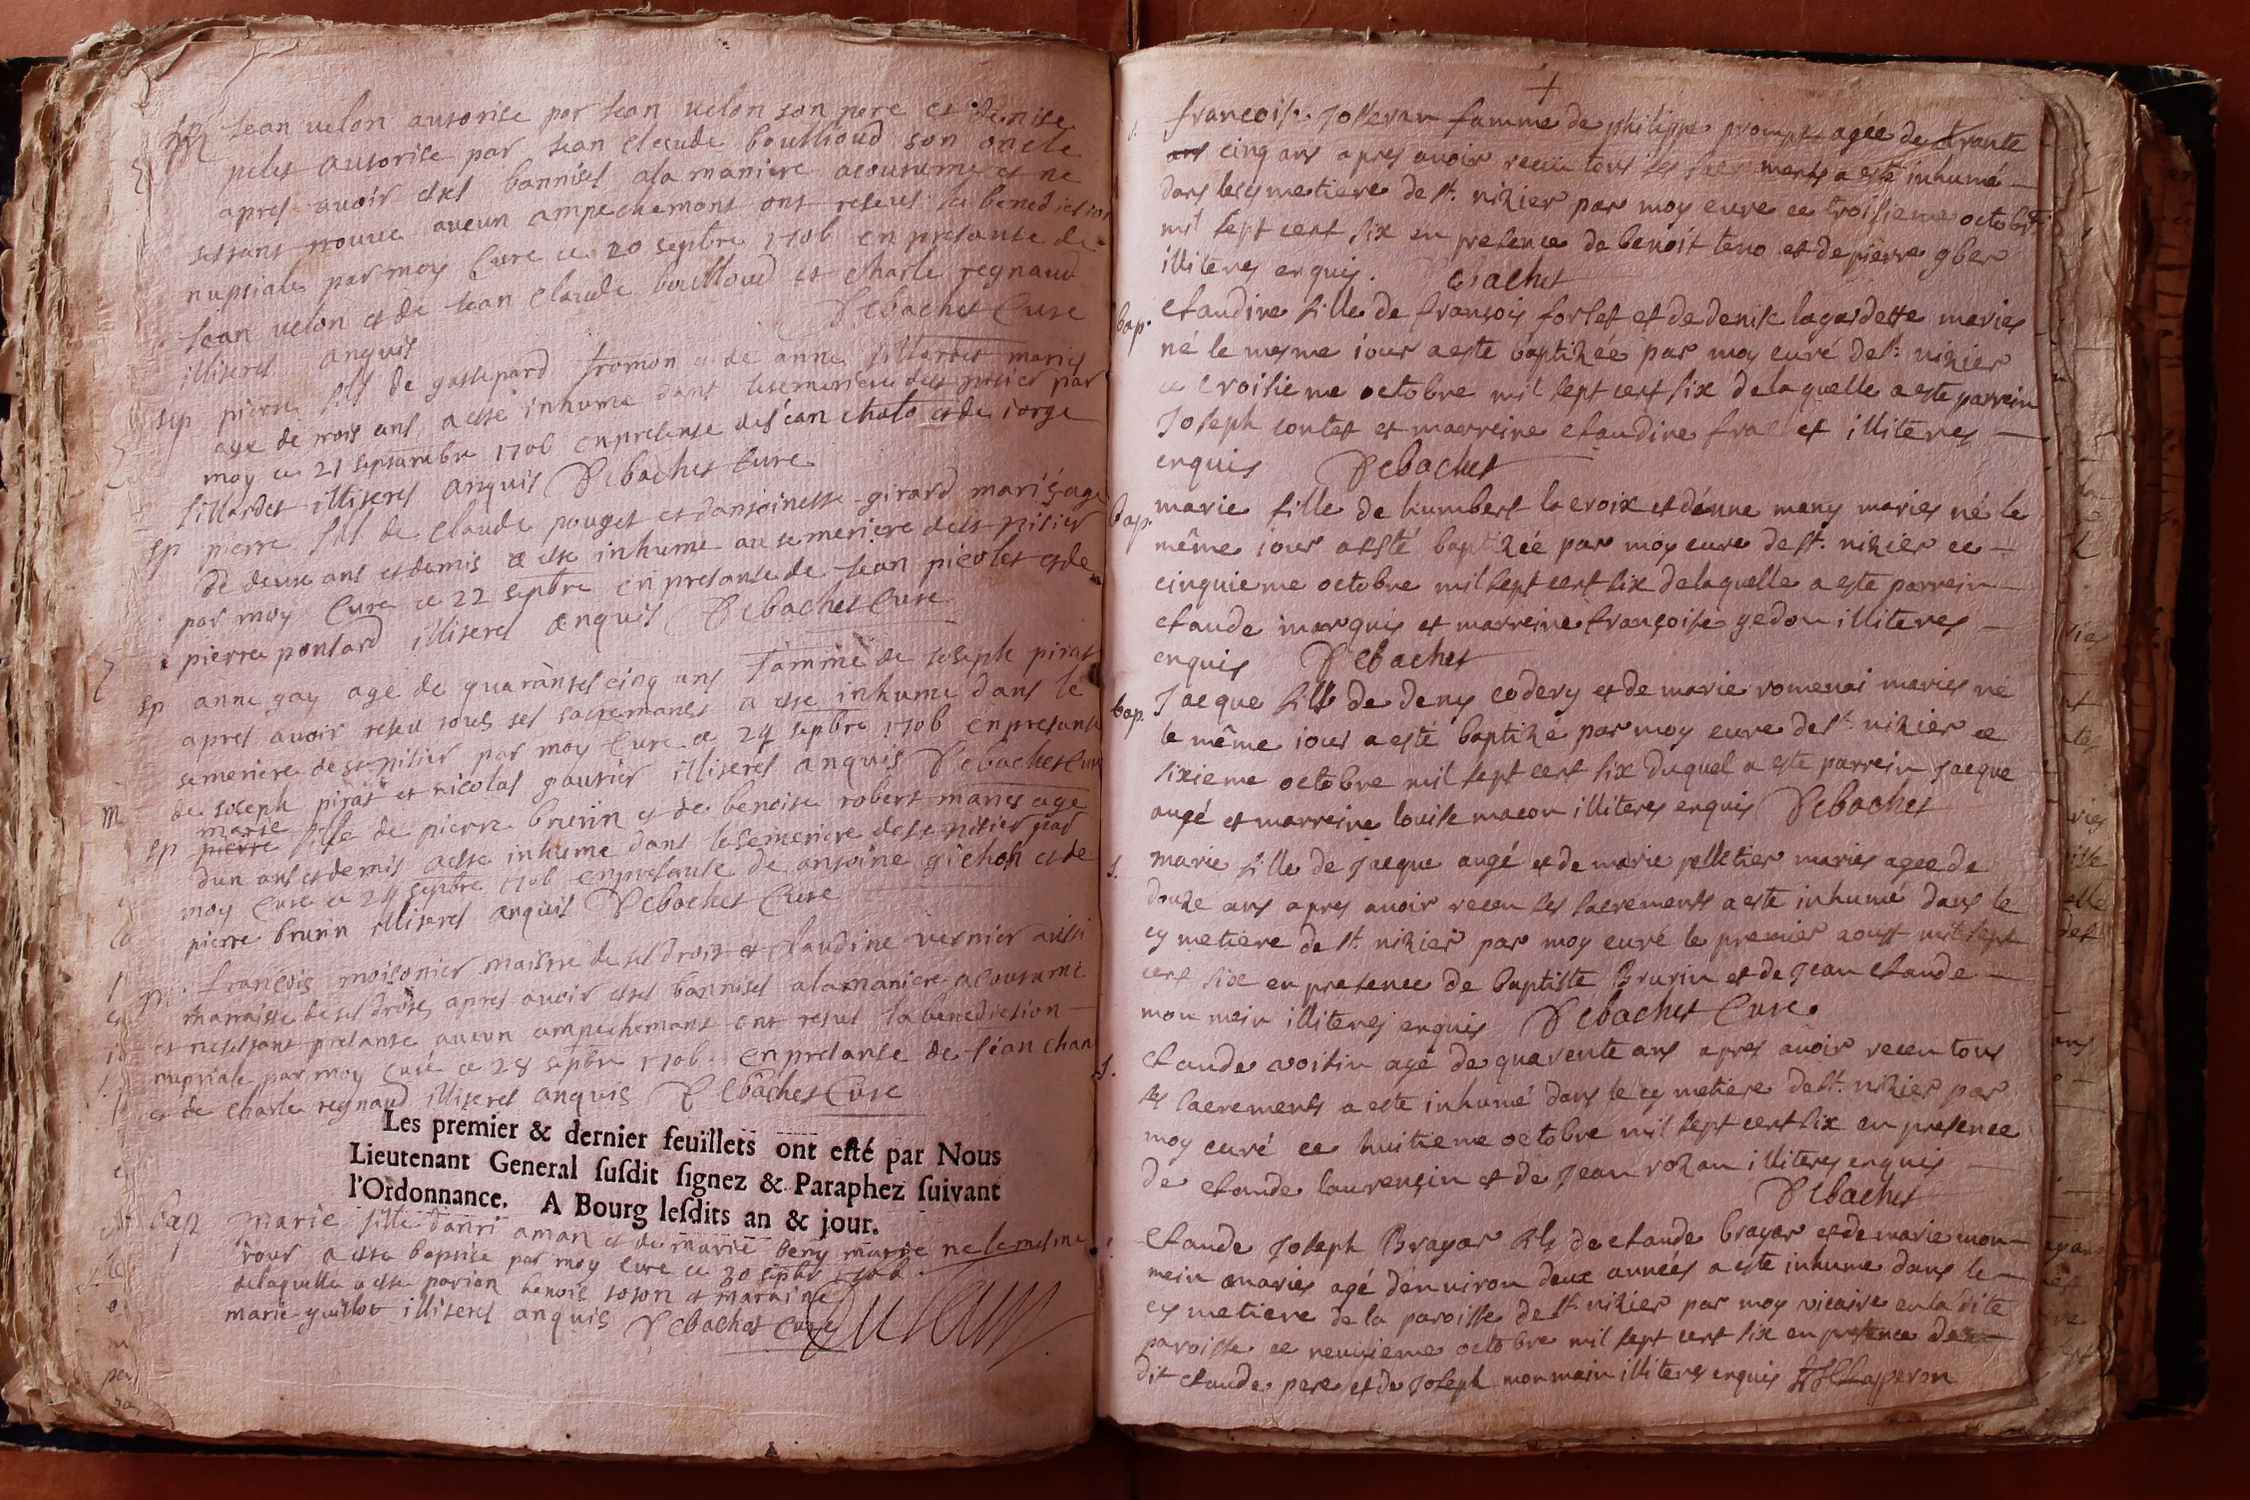 M Jean uelon autorise par Jean uelon son pere et denise
pelet autorise par Jean cleaude boullioud son oncle
apres auoir estes bannises a la maniere acoutume et ne
sestant trouve aucun ampechemant ont reseus la benediction
nuptiale par moy Cure ce 20 septbre 1706 en presante de
Jean uelon et de Jean Claude boullioud et Charle regnaud
illiseres anquis Debachet Cure
sep pierre fils de gassepard tromon et de anne sillardet maries
age de trois ans a este inhume dans le semetiere de st nisier par
moy ce 21 septambre 1706 en presense de jean chato et de iorge
sillardet illiseres anquis Debachet Cure
sp pierre fils de Claude pouget et dantoinette girard maries age
de deux ans et demis a este inhume au semetiere de st nisier
par moy Cure ce 22 septbre en presante de Jean picolet et de
pierre ponsard illiseres anquis Debachet Cure
sp anne gay age de quarantes cinq ans famme de Joseph pirat
apres auoir reseu tous ses sacremants a este inhume dans le
semetiere de st nisier par moy Cure ce 24 sepbre 1706 en presante
de Joseph pirat et nicolas gautier illiseres anquis Debachet Cure
marie
sp pierre fille de pierre brurin et de benoite robert maries age
dun ans et demis a este inhume dans le semetiere de st nisier par
moy Cure ce 24 septbre 1706 en presante de antoine gichon et de
pierre brurin illiseres anquis Debachet Cure
M. francois moisonier maistre de ses droits et Claudine uernier aussi
maitraisse de ses droits apres auoir estes bannises a la maniere acoutume
et ne sestant presante aucun ampechemant ont reseu la benediction
nuptiale par moy Cure ce 28 septbr 1706 en presante de Jean chan
et de Charle regnaud illiseres anquis Debachet Cure
Les premier & dernier feuillets ont esté par Nous
Lieutenant General susdit signez & Paraphez suivant
l'Ordonnance. A Bourg lesdits an & jour.
bap marie fille danri aman et de marie beny marie ne le mesme
iour a este baptise par moy Cure ce 30 septbr 1706
de laquelle a este parian benoit toson et maraine
marie guillot illiseres anquis Debachet Cure
+
s. francoise Josseran famme de philippe prompt agée de trante
ans cinq ans apres auoir receu tous ses sacrements a esté inhumé
dans le cymetiere de st. nizier par moy curé ce troisieme octobre
mil sept cent six en presence de benoit teno et de pierre gber
illiteres enquis. Debachet
bap. Claudine fille de fransois forlet et de denise lagardette maries
né le mesme iour a este baptizée par moy curé de st. nizier
ce troisieme octobre mil sept cent six de laquelle a este parrein
Joseph contet et marreine Claudine fra et illiteres
enquis Debachet
bap. marie fille de humbert la croix et d'anne meny maries né le
même iour a esté baptizée par moy cure de st. nizier ce
cinquieme octobre mil sept cent six de laquelle a este parrein
Claude marquis et marreine françoise gedon illiteres
enquis Debachet
bap. Jacque fils de denys codery et de marie romenai maries né
le même iour a esté baptizé par moy cure de st nizier ce
sixieme octobre mil sept cent six duquel a este parrein Jacque
augé et marreine louise macon illiteres enquis Debachet
s. marie fille de Jacque augé et de marie pelletier maries agee de
douze ans apres auoir receu ses sacrements a este inhumé dans le
cymetiere de st. nizier par moy curé le premier aoust mil sept
cent six en presence de baptiste Brurin et de Jean Claude
mon mein illiteres enquis Debachet Cure.
s. Claude voisin agé de quarente ans apres auoir receu tous
ses sacrements a este inhumé dans le cymetiere de st. nizier par
moy curé ce huitieme octobre mil sept cent six en presence
de Claude laurensin et de Jean rozan illiteres enquis
Debachet
Claude Joseph Brayar fils de Claude brayar et de marie mon
mein maries agé d'enuiron deux années a este inhume dans le
cymetiere de la paroisse de st. nizier par moy vicaire en la dite
paroisse ce neuuieme octobre mil sept cent six en presence du
dit Claude pere et de Joseph mon main illiteres enquis